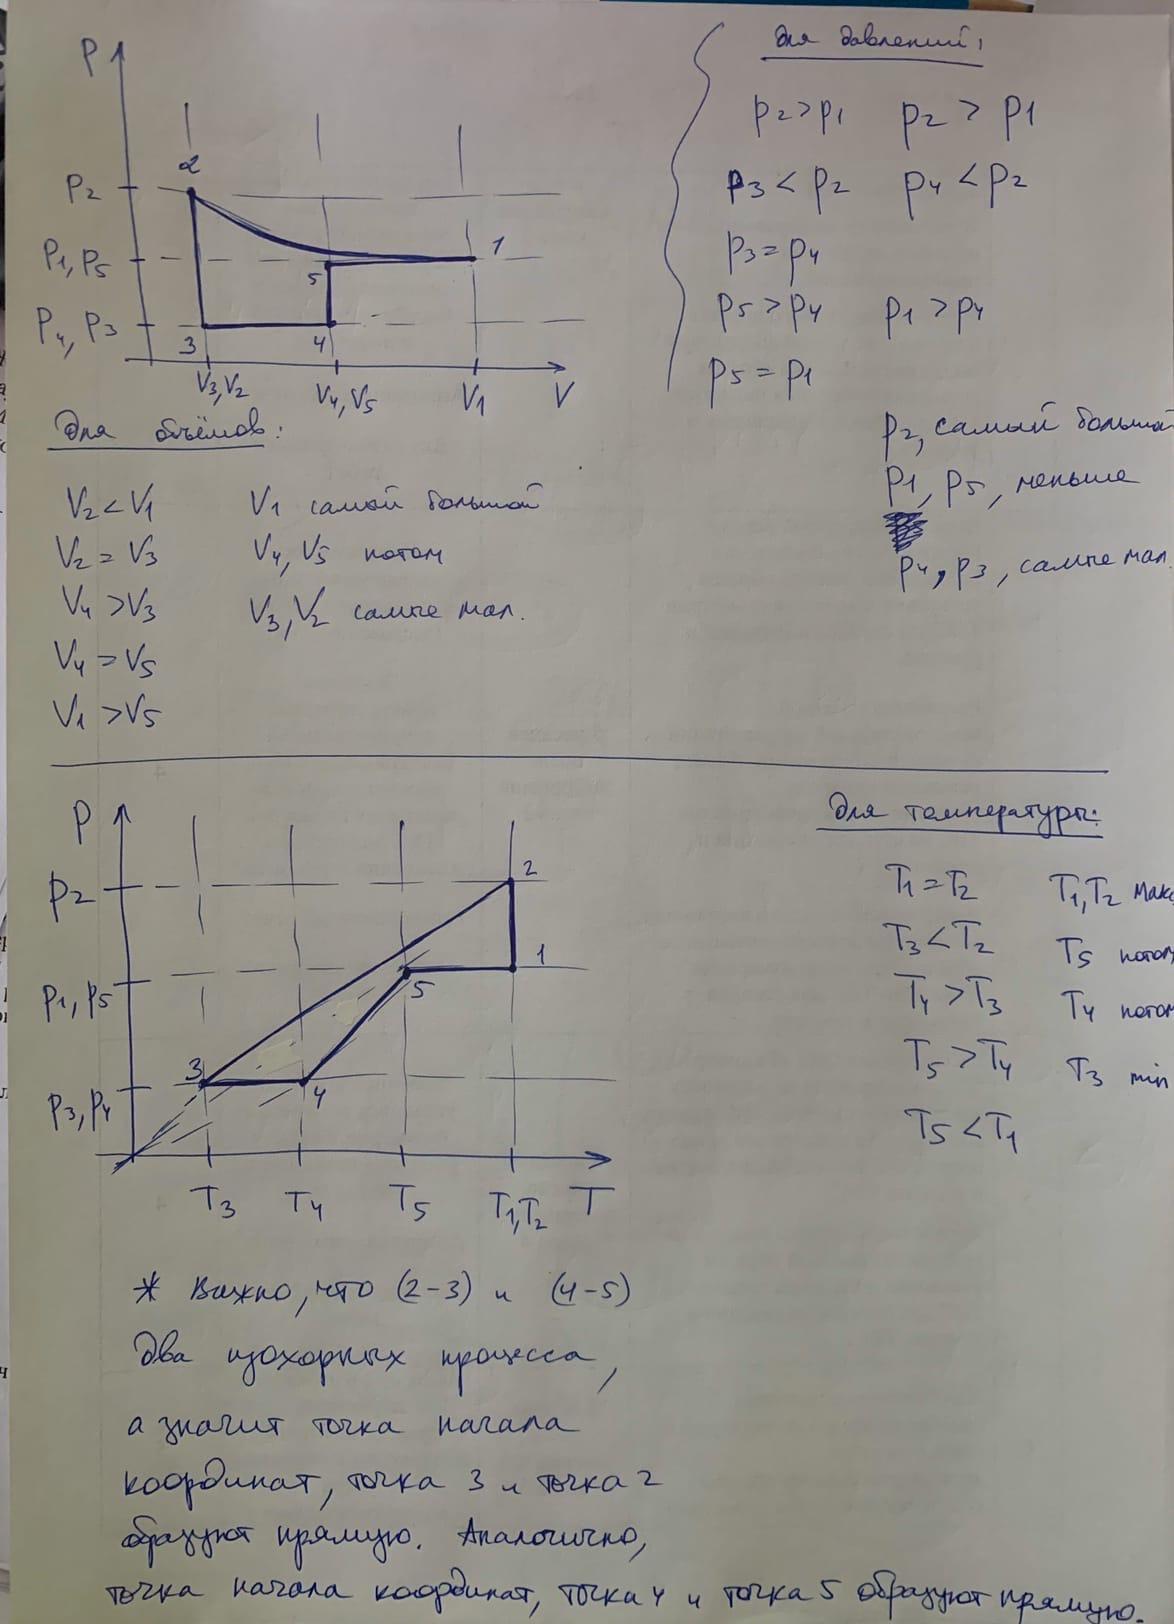 Для давлений:
p2>p1 p2 > p1
p3 < p2 p4 < p2
p3 = p4
p5 > p4 p1 > p4
p5 = p1
p2, самый большой
p1, p5, меньше
p4, p3, самые мал.
P
2
p2
p1, p5
1
5
p4, p3
3 4
V3, V2 V4, V5 V1 V
Для объёмов:
V2 < V1 V1 самый большой
V2 = V3 V4, V5 потом
V4 > V3 V3, V2 самые мал.
V4 = V5
V1 > V5
P
2
p2
1
p1, p5
5
3
4
p3, p4
T3 T4 T5 T1, T2 T
Для температуры:
T1 = T2 T1, T2 макс
T3 < T2 T5 потом
T4 > T3 T4 потом
T5 > T4 T3 min
T5 < T1
* Важно, что (2-3) и (4-5)
два изохорных процесса,
а значит точка начала
координат, точка 3 и точка 2
образуют прямую. Аналогично,
точка начала координат, точка 4 и точка 5 образуют прямую.